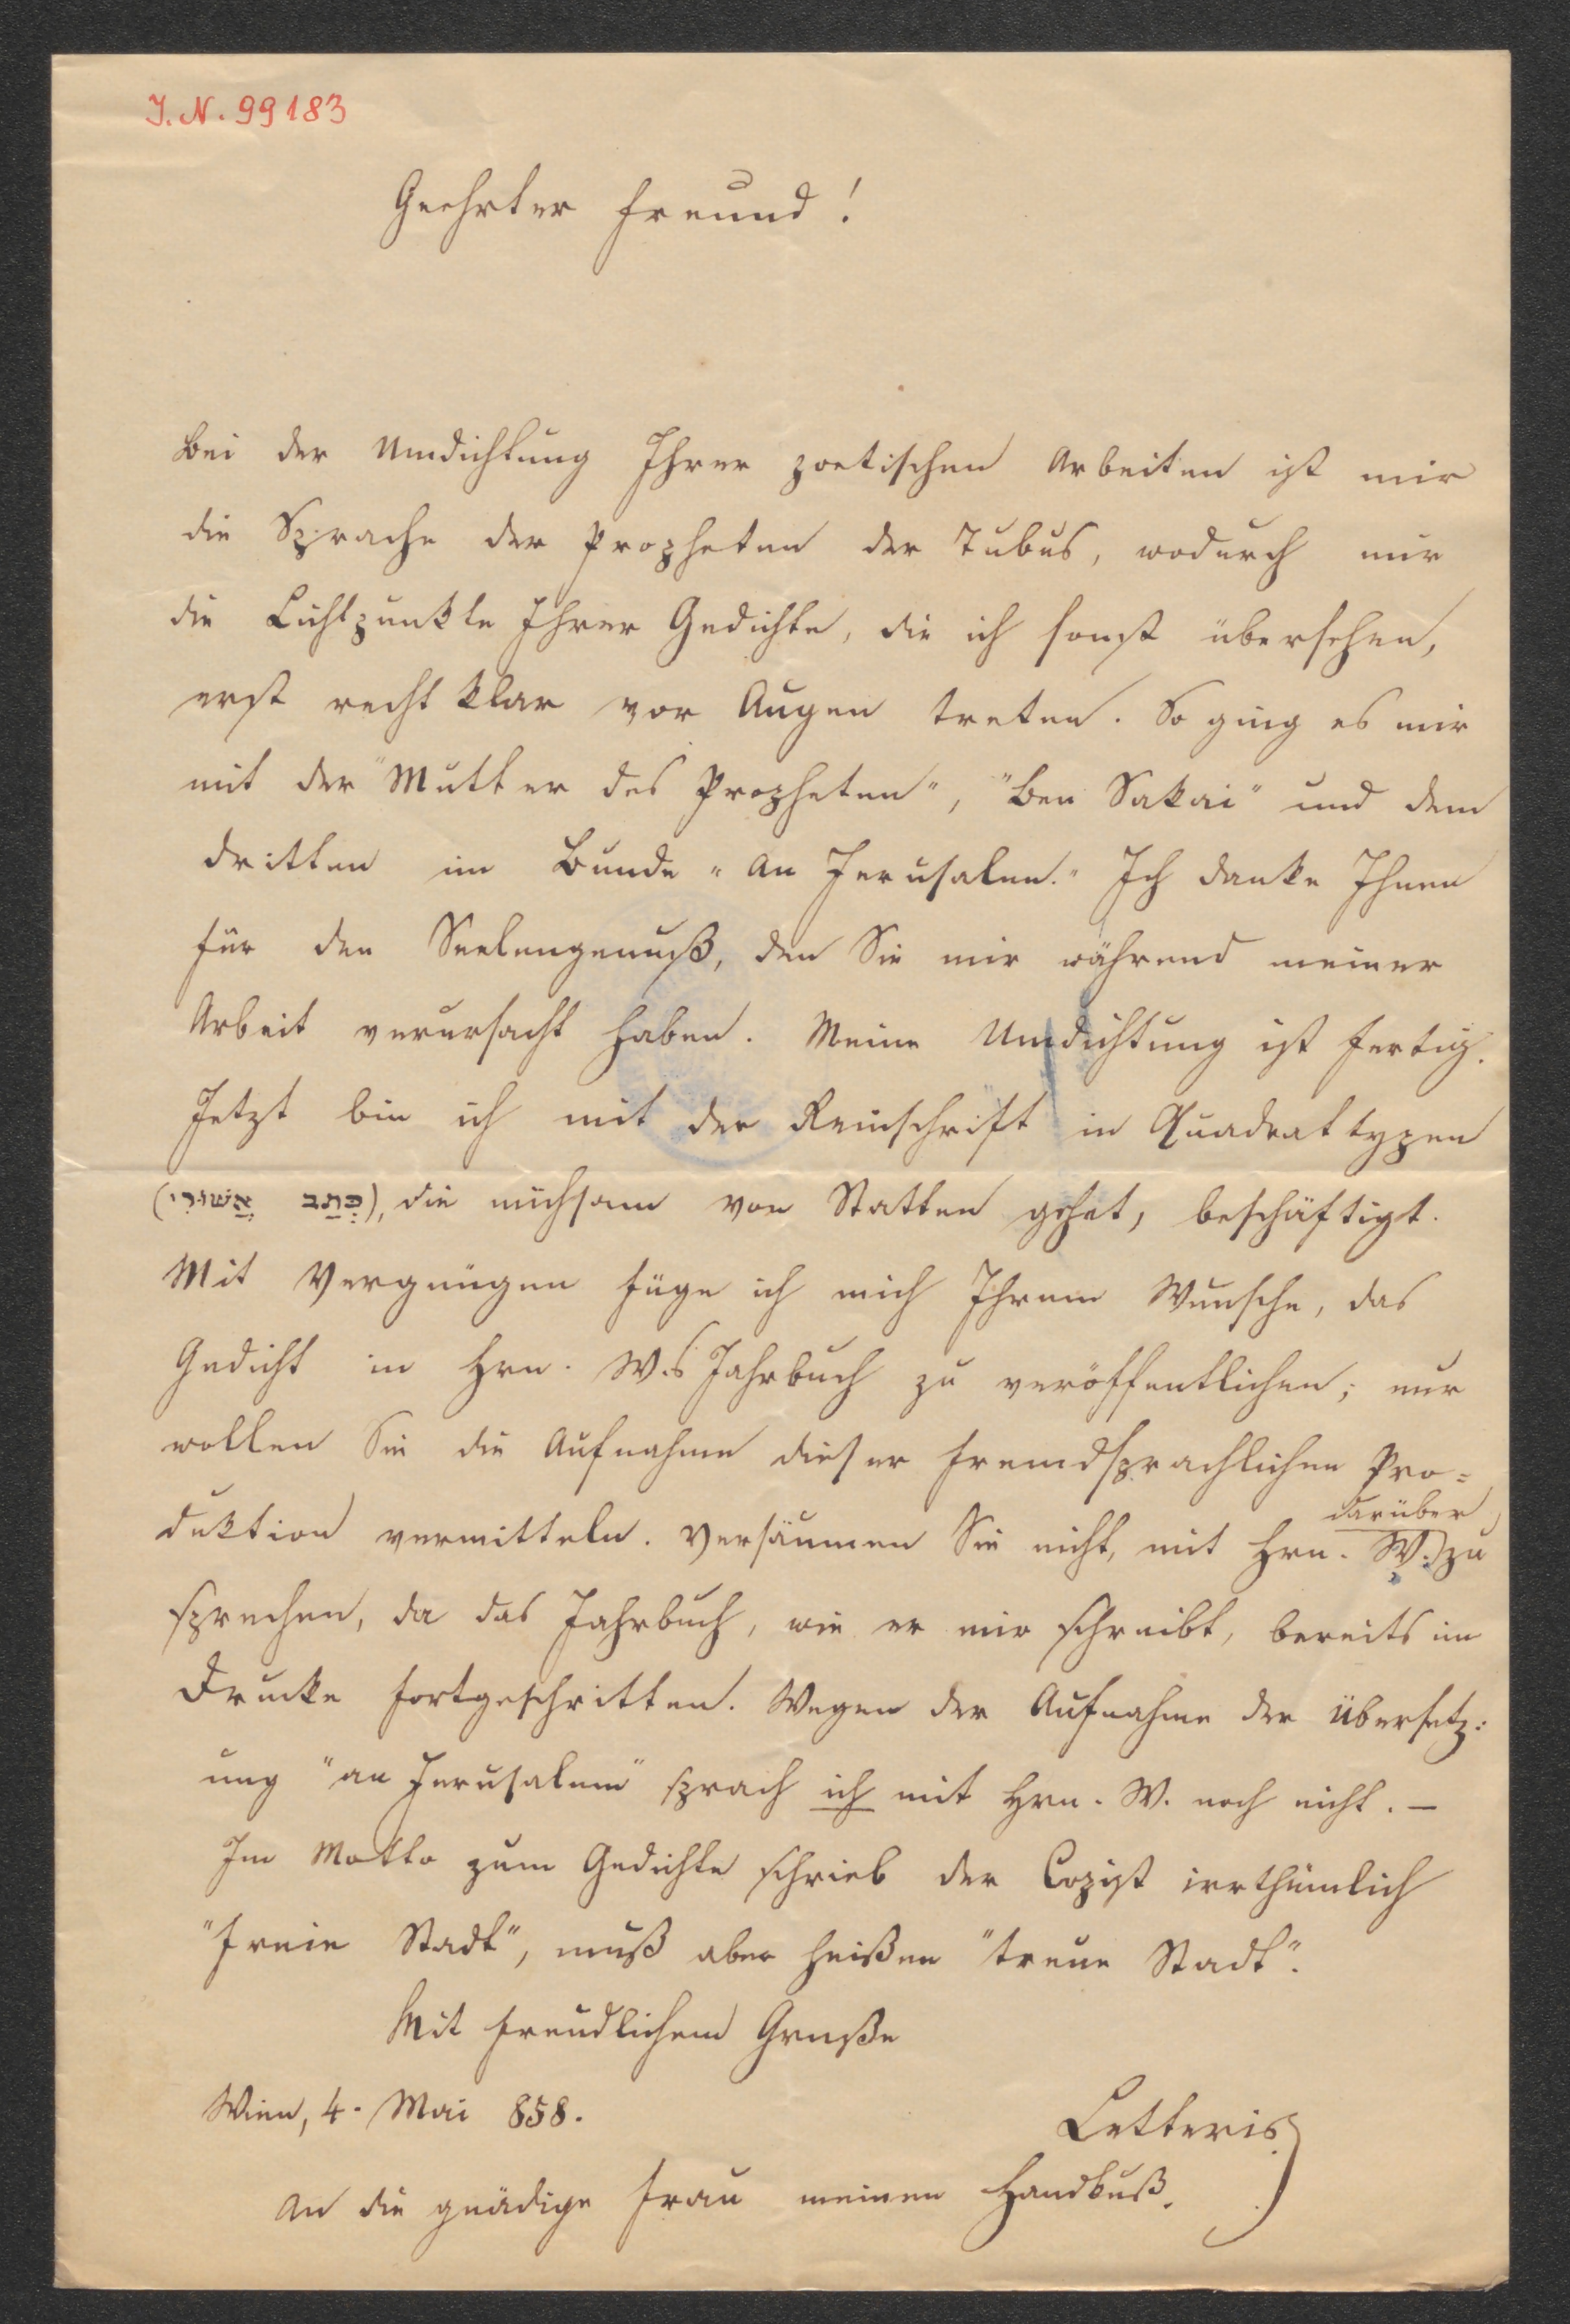 J. N. 99183
Geehrter Freund!
Bei der Umdichtung Ihrer poetischen Arbeiten ist mir
die Sprache der Propheten der Tubus, wodurch mir
die Lichtpunkte Ihrer Gedichte, die ich sonst übersehen,
erst recht klar vor Augen treten. So ging es mir
mit der "Mutter des Propheten", "Ben Sakai" und dem
dritten im Bunde "An Jerusalem." Ich danke Ihnen
für den Seelengenuß, den Sie mir während meiner
Arbeit verursacht haben. Meine Umdichtung ist fertig.
Jetzt bin ich mit der Reinschrift in Quadrattypen
(כְּתַב אֲשׁוּרִי), die mühsam von Statten gehet, beschäftigt.
Mit Vergnügen füge ich mich Ihrem Wunsche, das
Gedicht in Hrn. W.s Jahrbuch zu veröffentlichen; nur
wollen Sie die Aufnahme dieser fremdsprachlichen Pro=
duktion vermitteln. Versäumen Sie nicht, mit Hrn. W. darüber zu
sprechen, da das Jahrbuch, wie er mir schreibt, bereits im
Drucke fortgeschritten. Wegen der Aufnahme der Übersetz:
ung "an Jerusalem" sprach ich mit Hrn. W. noch nicht. —
Im Motto zum Gedichte schrieb der Copist irrthümlich
"freie Stadt", muß aber heißen "treue Stadt".
Mit freundlichem Gruße
Wien, 4. Mai 858.
Letteris
An die gnädige Frau meinen Handkuß.